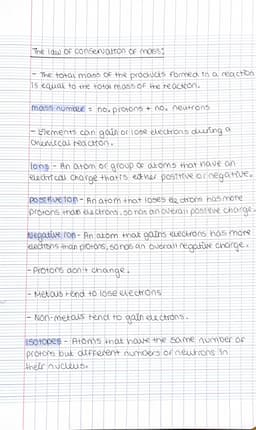 The law of conservation of mass:
- The total mass of the products formed in a reaction
is equal to the total mass of the reaction.
mass number = no. protons + no. neutrons
- Elements can gain or lose electrons during a
chemical reaction.
Ions - An atom or group of atoms that have an
electrical charge that is either positive or negative.
positive ion - An atom that loses electrons has more
protons than electrons, so has an overall positive charge.
Negative ion - An atom that gains electrons has more
electrons than protons, so has an overall negative charge.
- Protons don't change.
- Metals tend to lose electrons
- Non-metals tend to gain electrons.
Isotopes - Atoms that have the same number of
protons but different numbers of neutrons in
their nucleus.